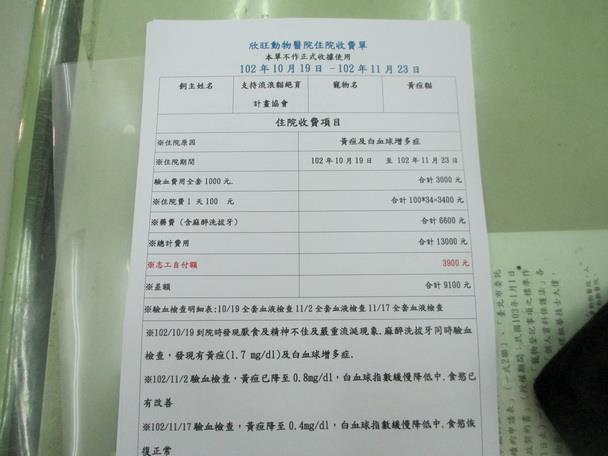 欣旺動物醫院住院收費單
本單不作正式收據使用
102 年 10 月 19 日 –102 年 11 月 23 日
飼主姓名 支持流浪貓絕育計畫協會 寵物名 黃疸貓
住院收費項目
※住院原因 黃疸及白血球增多症
※住院期間 102 年 10 月 19 日 至 102 年 11 月 23 日
驗血費用全套 1000 元. 合計 3000 元
※住院費 1 天 100 元 合計 100*34=3400 元
※藥費 (含麻醉洗拔牙) 合計 6600 元
※總計費用 合計 13000 元
※志工自付額 3900 元
※差額 合計 9100 元
※驗血檢查明細表:10/19 全套血液檢查 11/2 全套血液檢查 11/17 全套血液檢查
※102/10/19 到院時發現厭食及精神不佳及嚴重流涎現象.麻醉洗拔牙同時驗血
檢查，發現有黃疸(1.7 mg/dl)及白血球增多症.
※102/11/2 驗血檢查，黃疸已降至 0.8mg/dl，白血球指數緩慢降低中.食慾已
有改善
※102/11/17 驗血檢查，黃疸降至 0.4mg/dl，白血球指數緩慢降低中.食慾恢
復正常